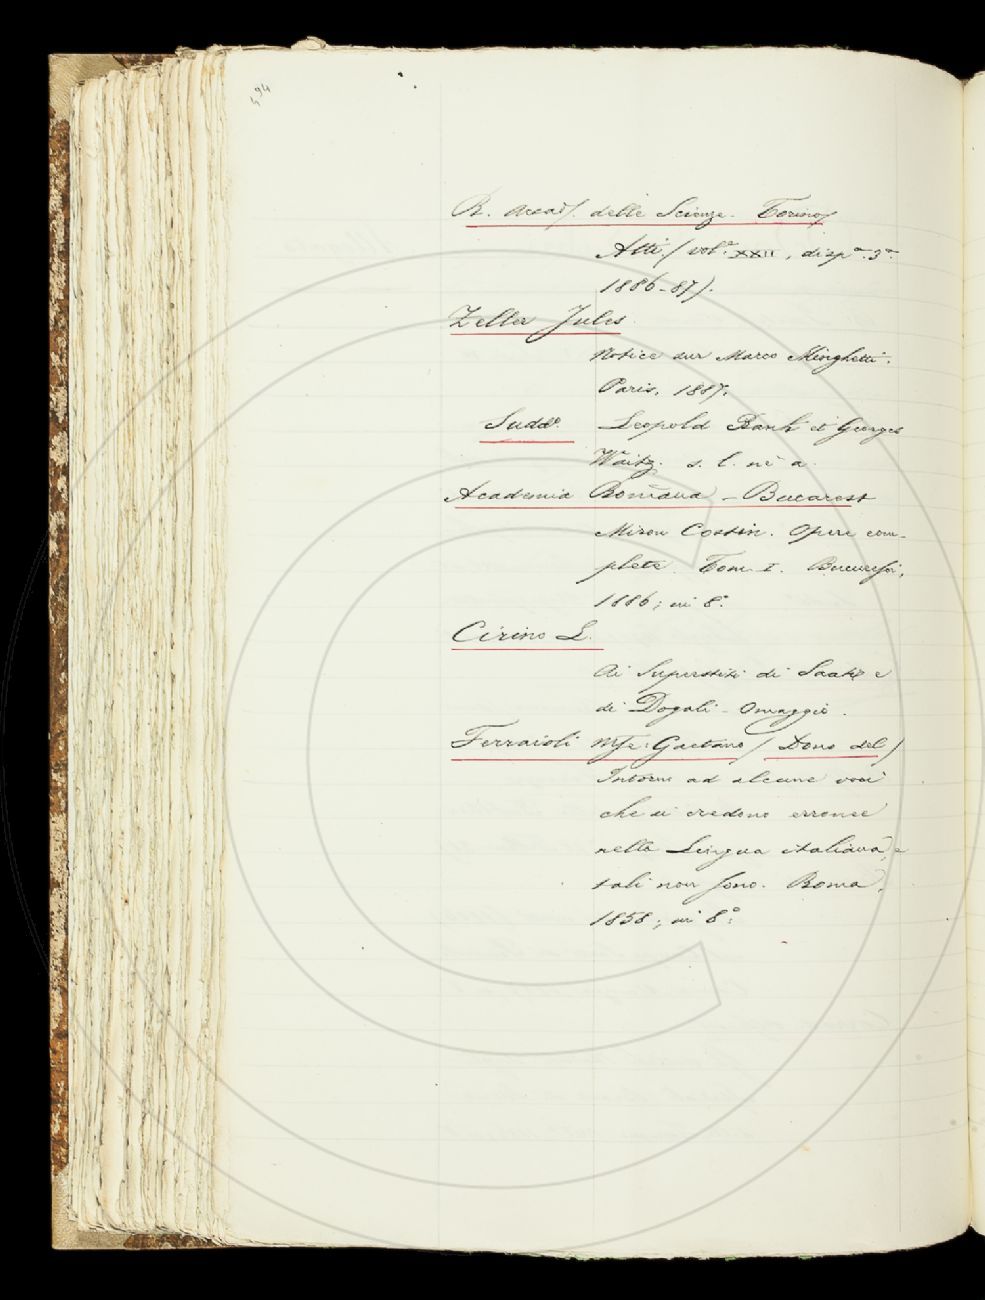 494
R. Accad. delle Scienze. Torino/
Atti/ vol.e XXII, disp.a 3.a
1886-87/.
Zeller Jules
Notice sur Marco Minghetti.
Paris, 1887.
Sudd.o Leopold Rank et Georges
Waitz. s. l. nè a.
Academia Româna - Bucarest
Miron Costin. Opere com-
plete. Tom. I. Bucuresci,
1886; in 8.o
Cirino L.
Ai Superstiti di Saati e
di Dogali - Omaggio.
Ferraioli Mse: Gaetano / Dono del /
Intorno ad alcune voci
che si credono erronee
nella Lingua italiana, e
tali non sono. Roma,
1858; in 8.o